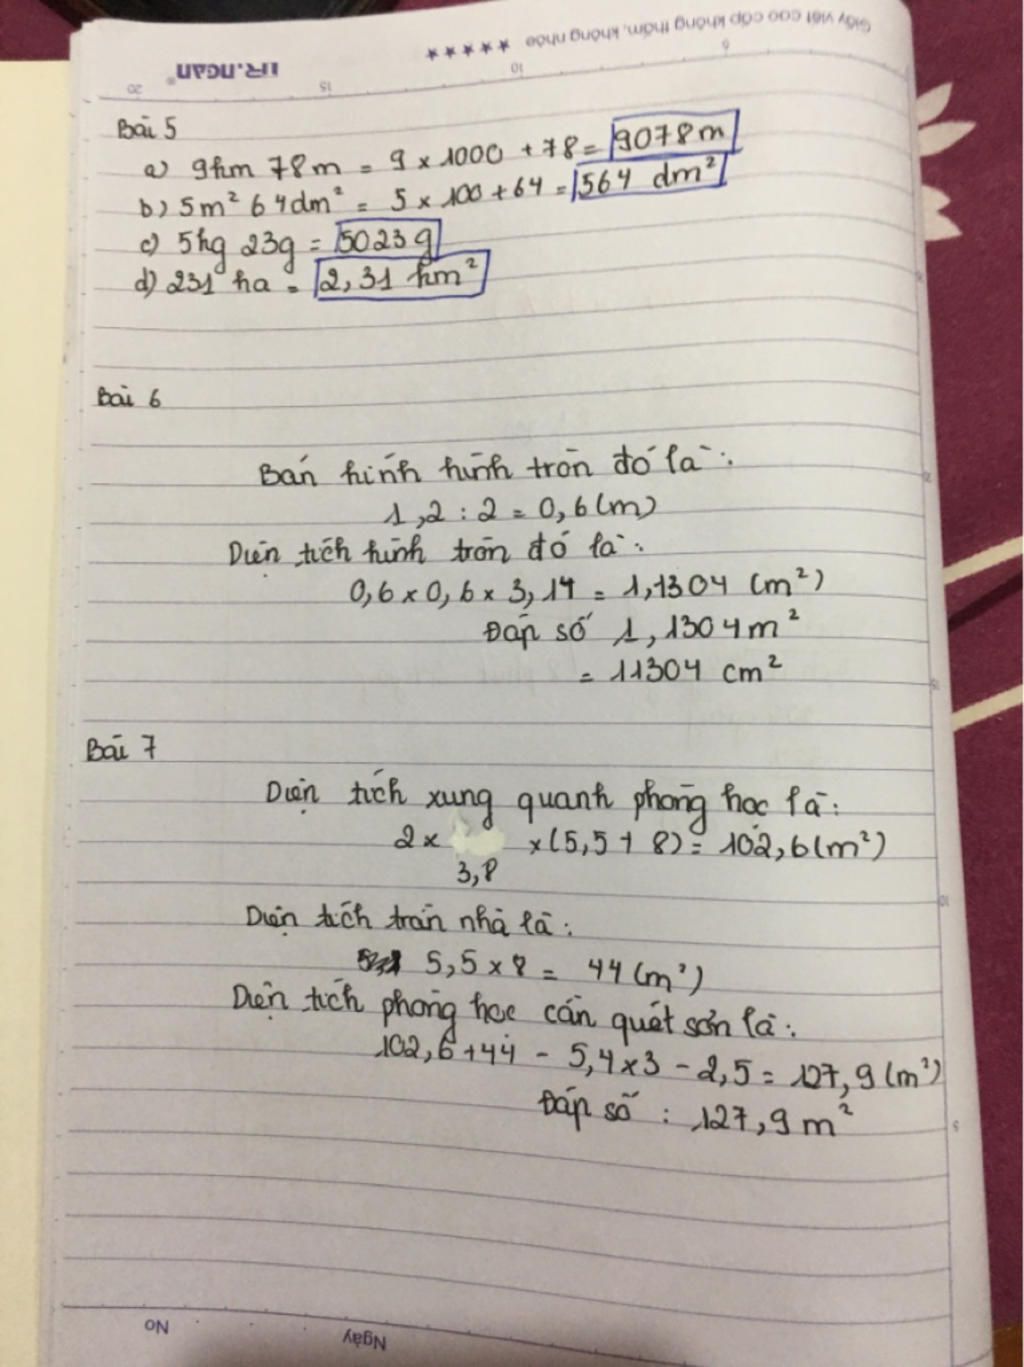 Giấy viết cao cấp không thấm, không nhòe ★★★★★
TR.NGAN®
6
10
15
20
Bài 5
a) 9km 78m = 9 x 1000 + 78 = 9078m
b) 5m² 64dm² = 5 x 100 + 64 = 564 dm²
c) 5kg 23g = 5023g
d) 231 ha = 2,31 km²
Bài 6
Bán kính hình tròn đó là:
1,2 : 2 = 0,6 (m)
Diện tích hình tròn đó là:
0,6 x 0,6 x 3,14 = 1,1304 (m²)
Đáp số 1,1304m²
= 11304 cm²
Bài 7
Diện tích xung quanh phòng học là:
2 x 3,8 x (5,5 + 8) = 102,6 (m²)
Diện tích trần nhà là:
5,5 x 8 = 44 (m²)
Diện tích phòng học cần quét sơn là:
102,6 + 44 - 5,4 x 3 - 2,5 = 127,9 (m²)
Đáp số : 127,9 m²
Ngày
No